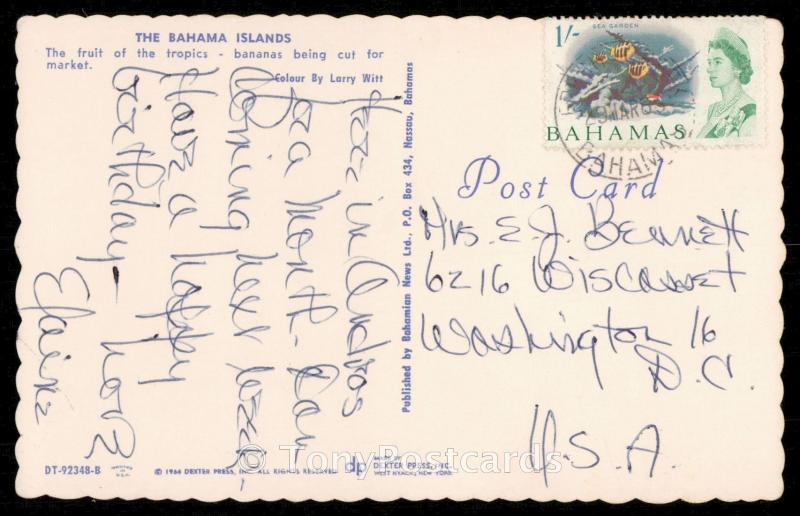 THE BAHAMA ISLANDS
The fruit of the tropics - bananas being cut for
market.
Colour By Larry Witt
in Andros
for a month. Dan
coming next week,
Have a happy
birthday - Love
Elaine
Published by Bahamian News Ltd., P.O. Box 434, Nassau, Bahamas
SEA GARDEN
1/-
BAHAMAS
29 MAR
BAHAMA
Post Card
Mrs. E. J. Bennett
6216 Wiscasset
Washington 16
D.C.
U.S.A.
DT-92348-B
© 1964 DEXTER PRESS, INC. ALL RIGHTS RESERVED
dp
MADE BY
DEXTER PRESS, INC.
WEST NYACK, NEW YORK
© TonyPostcards